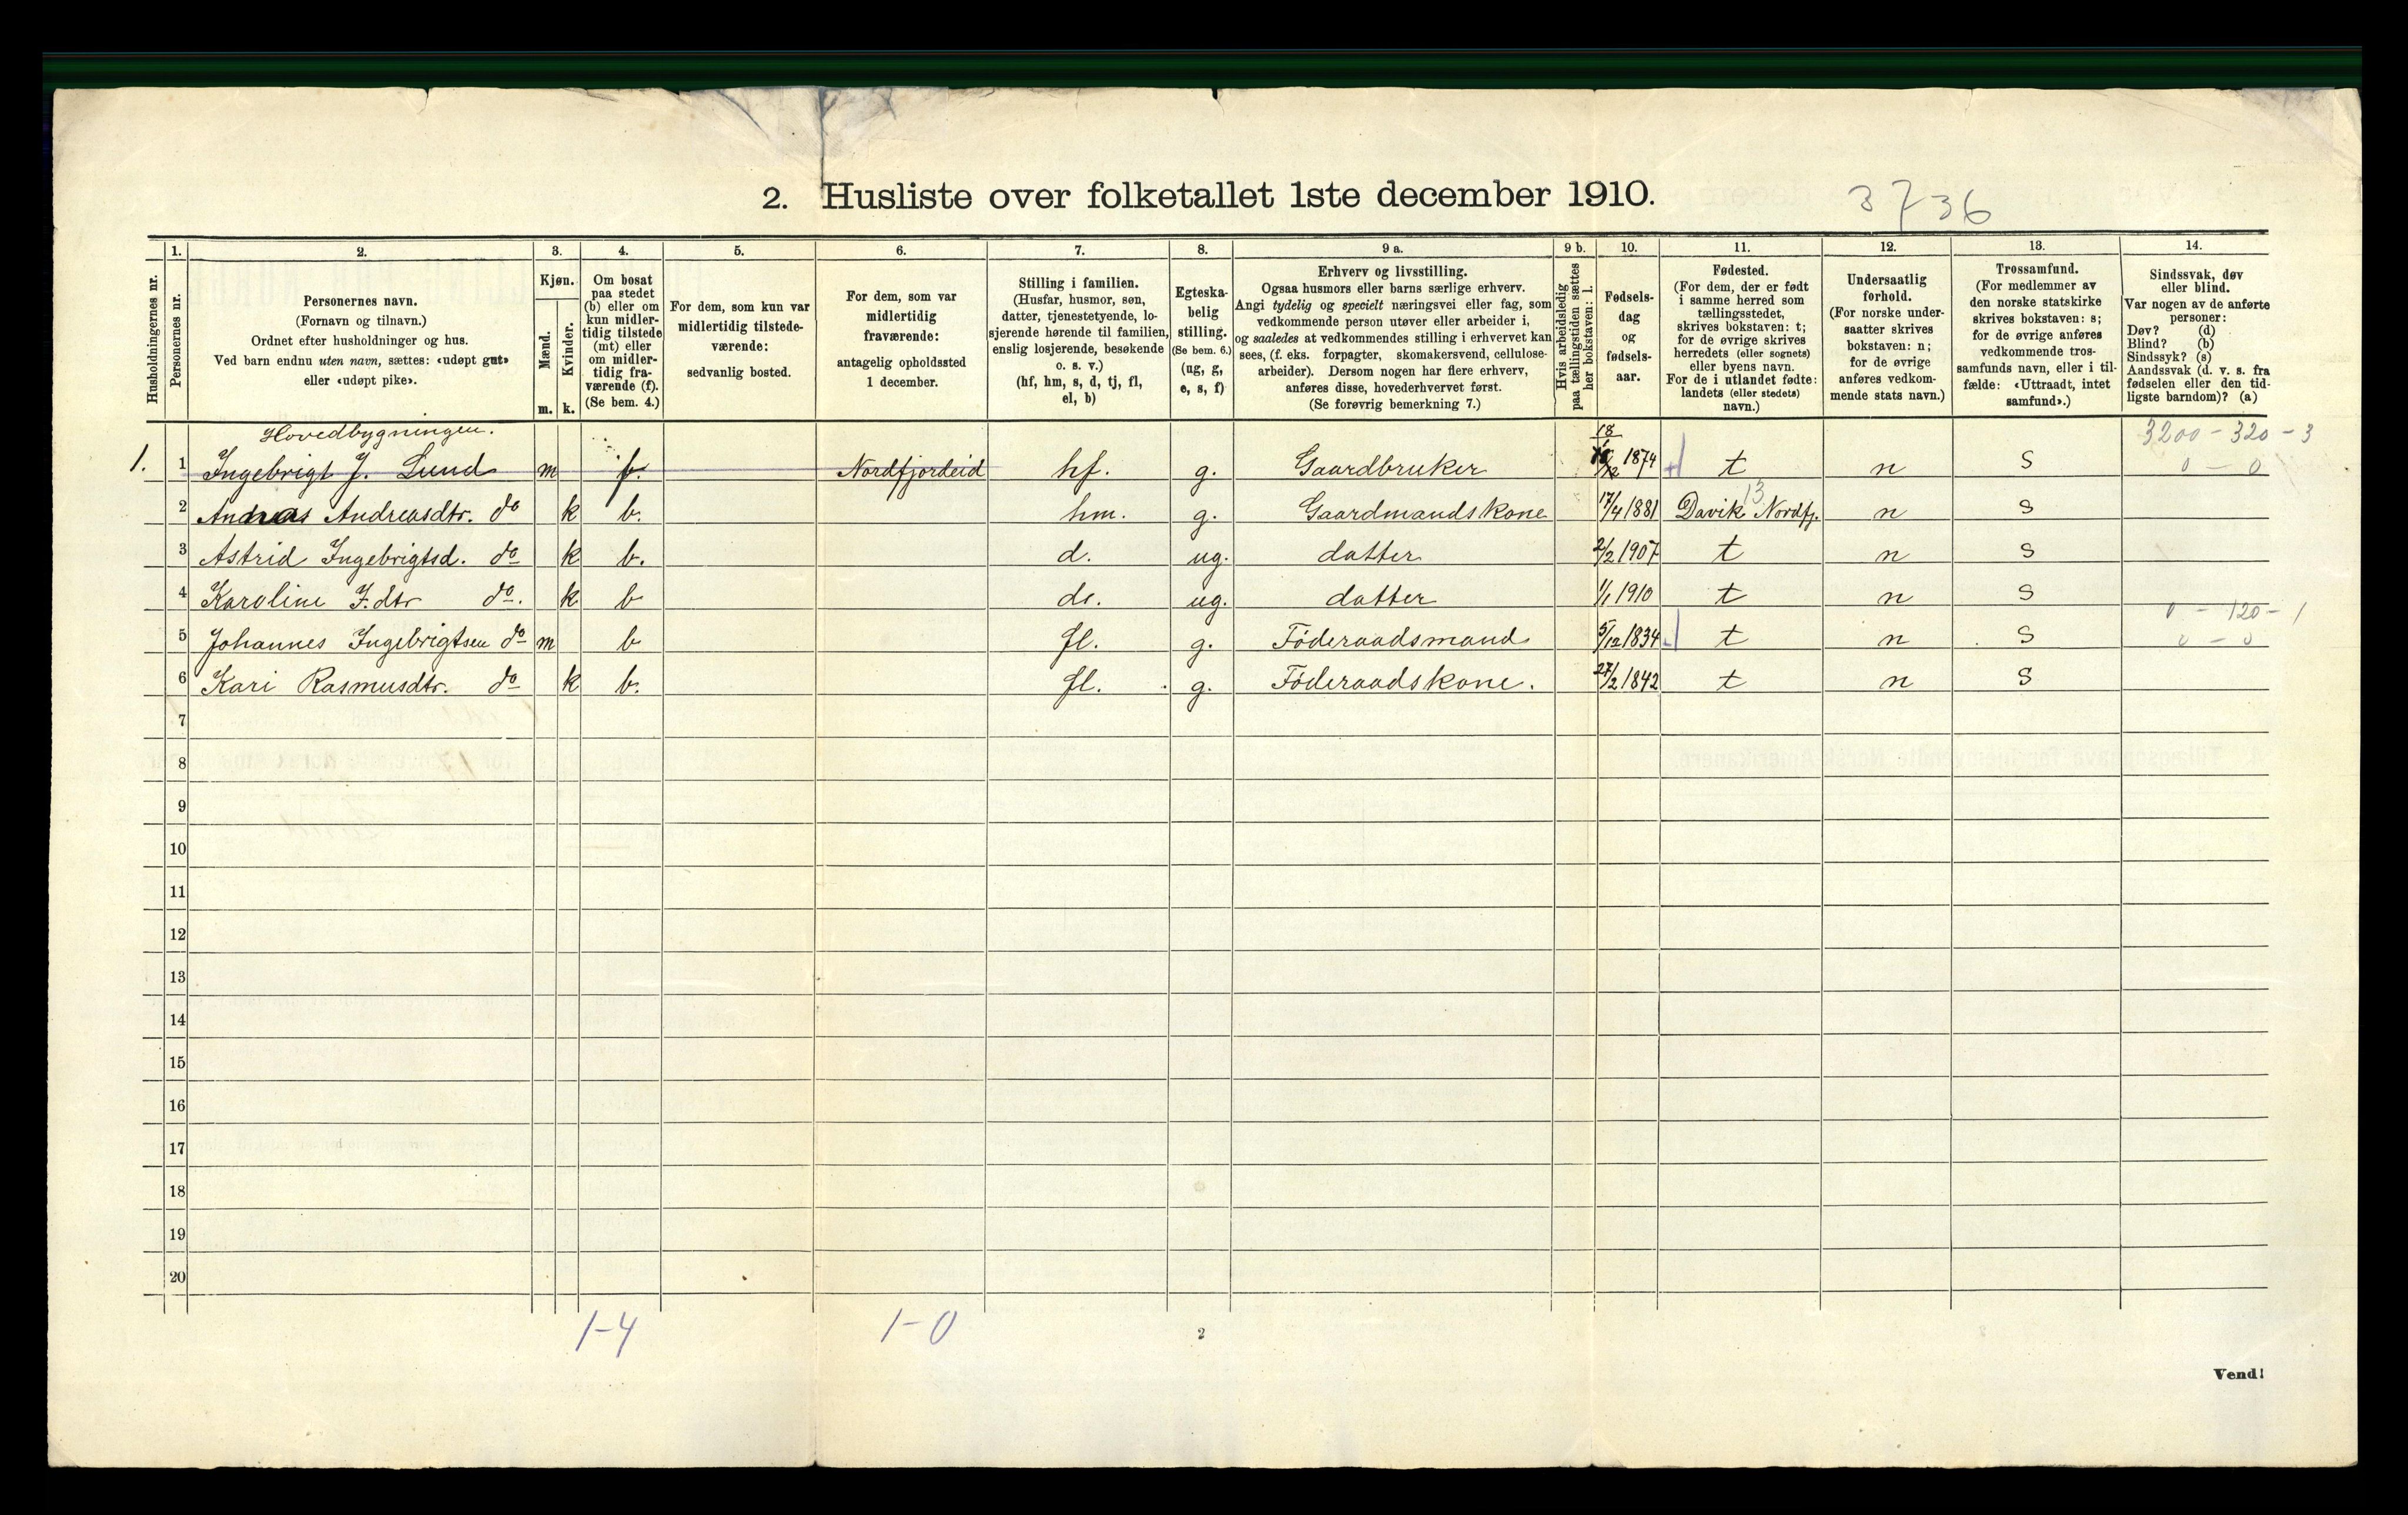 2. Husliste over folketallet 1ste december 1910.
3736
Husholdningernes nr.
1.
Personernes nr.
2.
Personernes navn.
(Fornavn og tilnavn.)
Ordnet efter husholdninger og hus.
Ved barn endnu uten navn, sættes: «udøpt gut»
eller «udøpt pike».
3.
Kjøn.
Mænd.
Kvinder.
m. k.
4.
Om bosat
paa stedet
(b) eller om
kun midler-
tidig tilstede
(mt) eller
om midler-
tidig fra-
værende (f).
(Se bem. 4.)
5.
For dem, som kun var
midlertidig tilstede-
værende:
sedvanlig bosted.
6.
For dem, som var
midlertidig
fraværende:
antagelig opholdssted
1 december.
7.
Stilling i familien.
(Husfar, husmor, søn,
datter, tjenestetyende, lo-
sjerende hørende til familien,
enslig losjerende, besøkende
o. s. v.)
(hf, hm, s, d, tj, fl,
el, b)
8.
Egteska-
belig
stilling.
(Se bem. 6.)
(ug, g,
e, s, f)
9 a.
Erhverv og livsstilling.
Ogsaa husmors eller barns særlige erhverv.
Angi tydelig og specielt næringsvei eller fag, som
vedkommende person utøver eller arbeider i,
og saaledes at vedkommendes stilling i erhvervet kan
sees, (f. eks. forpagter, skomakersvend, cellulose-
arbeider). Dersom nogen har flere erhverv,
anføres disse, hovederhvervet først.
(Se forøvrig bemerkning 7.)
9 b.
Hvis arbeidsledig
paa tællingstiden sættes
her bokstaven: l.
10.
Fødsels-
dag
og
fødsels-
aar.
11.
Fødested.
(For dem, der er født
i samme herred som
tællingsstedet,
skrives bokstaven: t;
for de øvrige skrives
herredets (eller sognets)
eller byens navn.
For de i utlandet fødte:
landets (eller stedets)
navn.)
12.
Undersaatlig
forhold.
(For norske under-
saatter skrives
bokstaven: n;
for de øvrige
anføres vedkom-
mende stats navn.)
13.
Trossamfund.
(For medlemmer av
den norske statskirke
skrives bokstaven: s;
for de øvrige anføres
vedkommende tros-
samfunds navn, eller i til-
fælde: «Uttraadt, intet
samfund».)
14.
Sindssvak, døv
eller blind.
Var nogen av de anførte
personer:
Døv? (d)
Blind? (b)
Sindssyk? (s)
Aandssvak (d. v. s. fra
fødselen eller den tid-
ligste barndom)? (a)
Hovedbygningen.
18
3200 - 320 - 3
1. 1 Ingebrigt J. Lund m f. Nordfjordeid hf. g. Gaardbruker /12 1874 t n s 0 - 0
13
2 Andreasdtr. do k b. hm. g. Gaardmandskone 17/4 1881 Davik Nordfj. n s
3 Astrid Ingebrigtsd. do k b. d. ug. datter 2/2 1907 t n s
4 Karoline I.dtr do. k b d. ug. datter 1/1 1910 t n s
0 - 120 - 1
5 Johannes Ingebrigtsen do m b fl. g. Föderaadsmand 5/12 1834 t n s 0 - 0
6 Kari Rasmusdtr. do k b. fl. g. Föderaadskone. 27/2 1842 t n s
7
8
9
10
11
12
13
14
15
16
17
18
19
20
1-4 1-0
2
Vend!